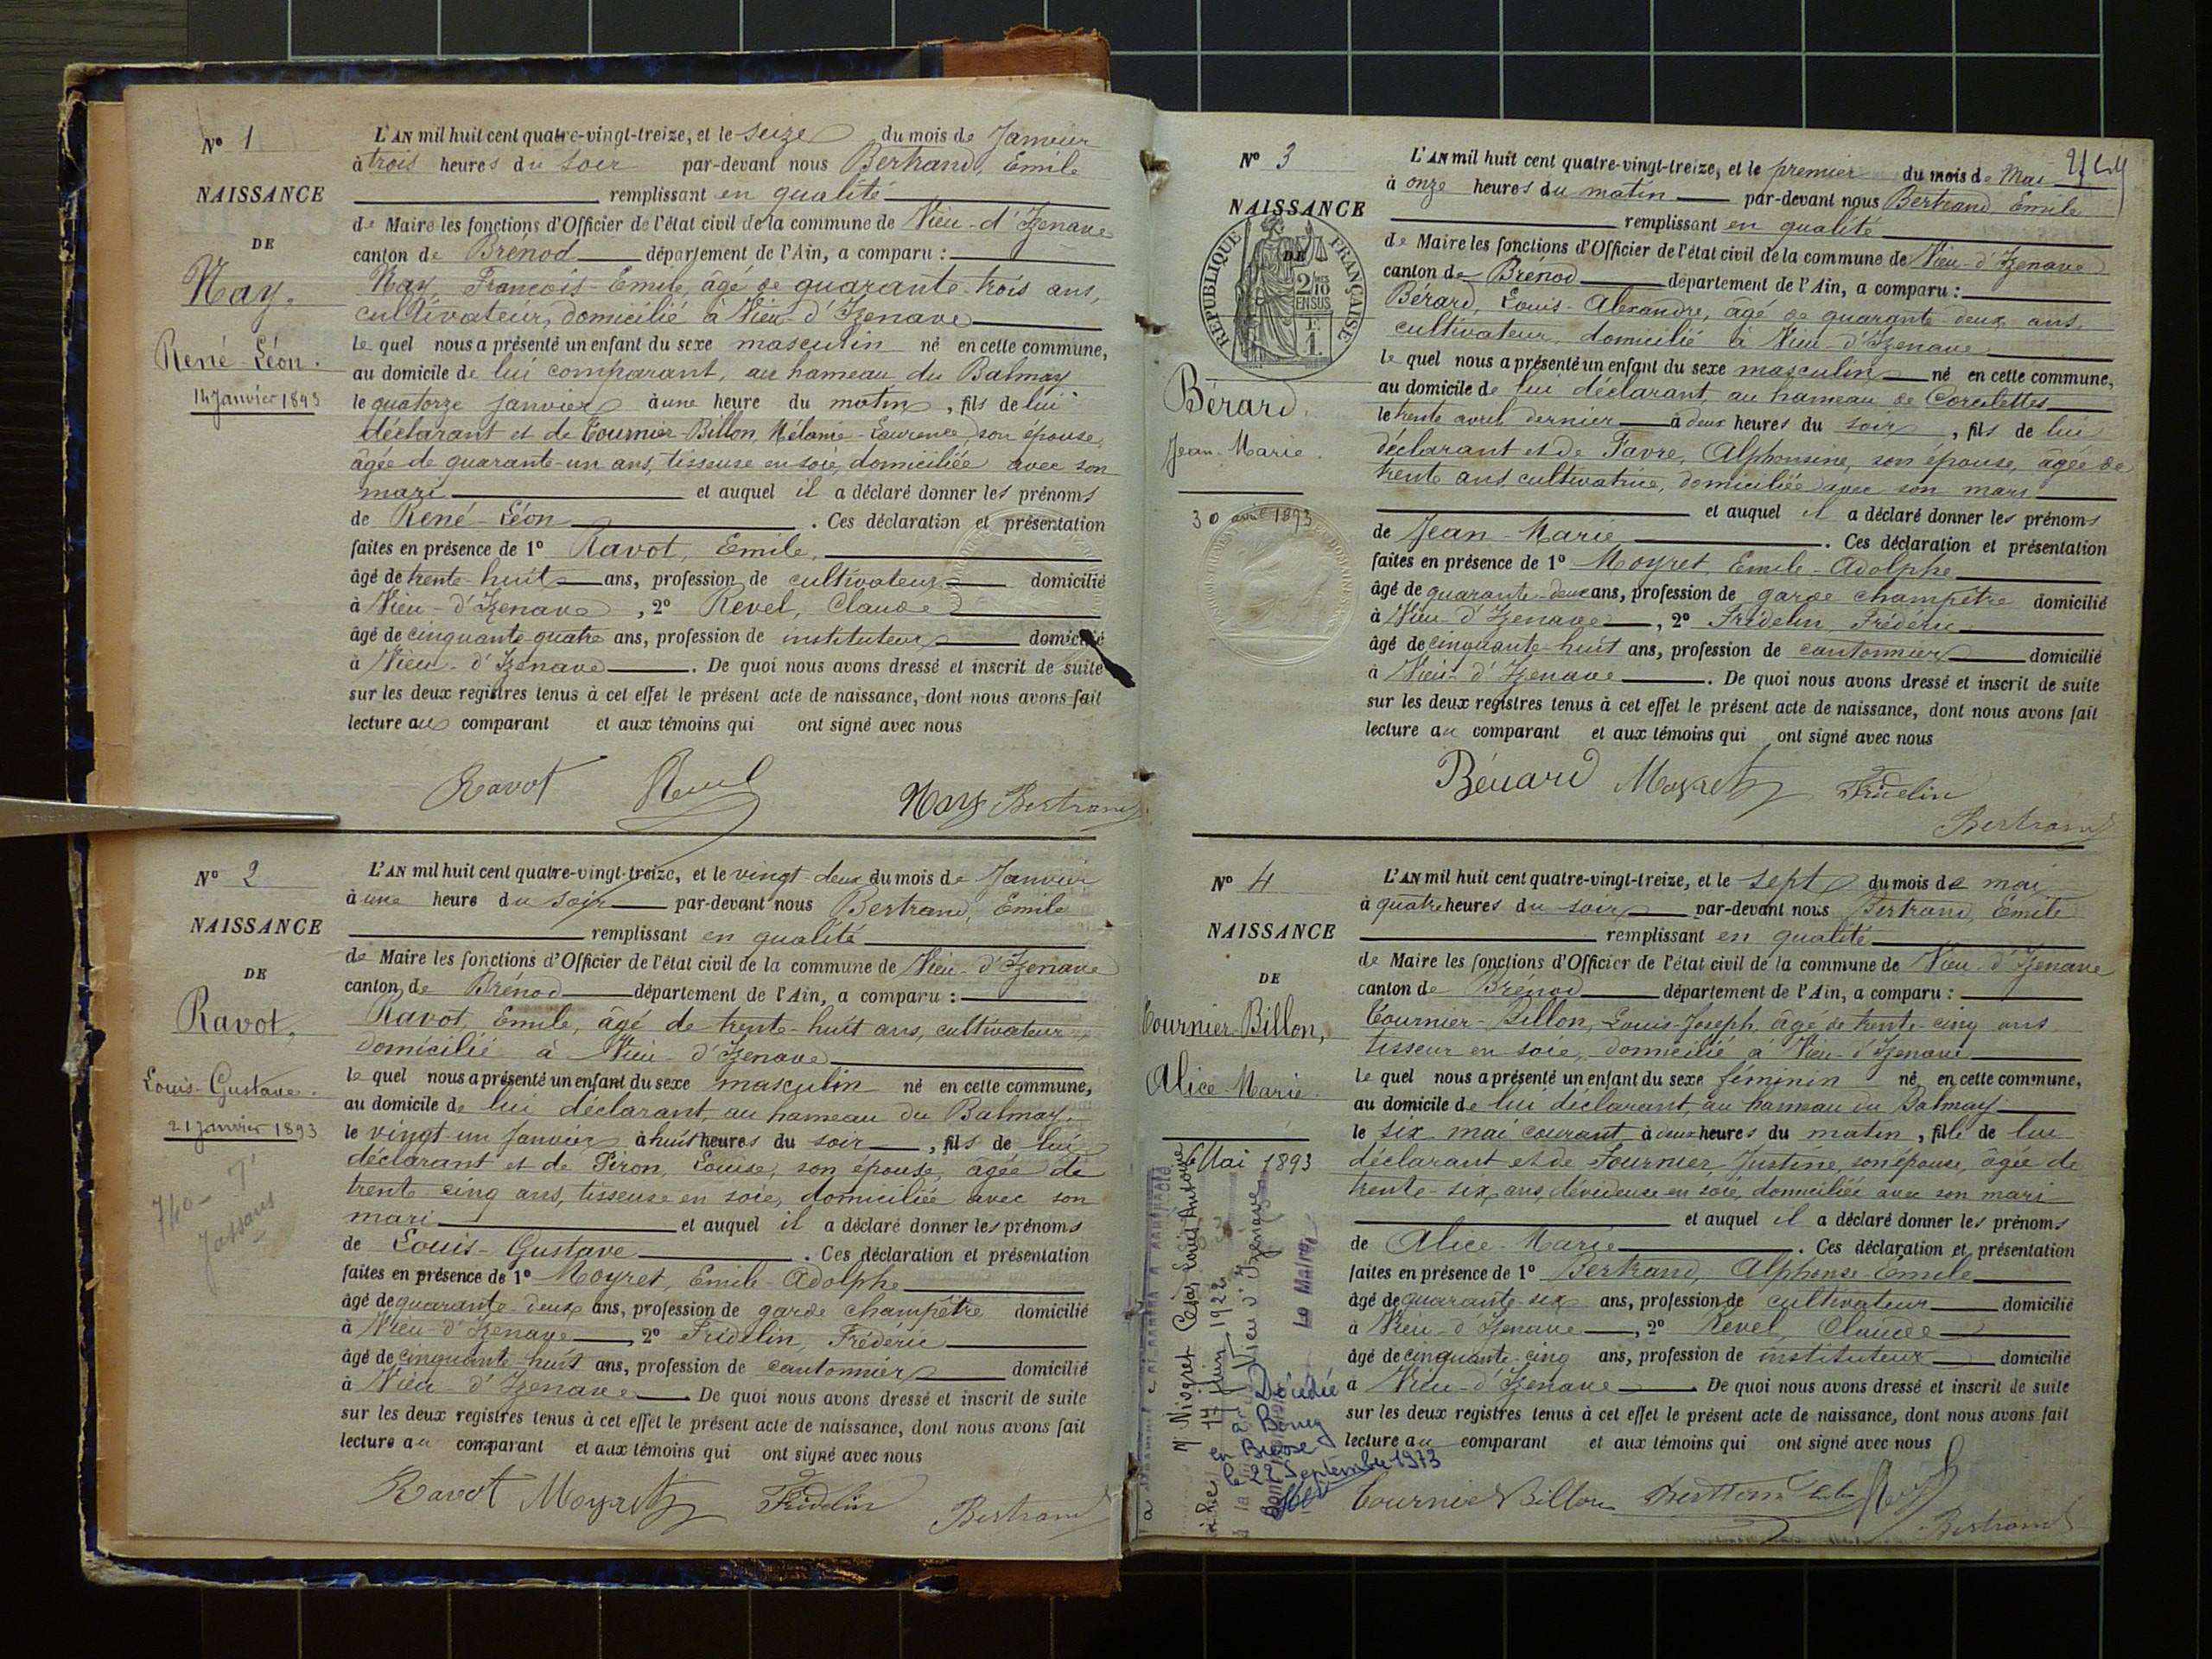 N° 1
NAISSANCE
DE
Nay,
René-Léon.
14 Janvier 1893
L'AN mil huit cent quatre-vingt-treize, et le seize du mois de Janvier
à trois heures du soir par-devant nous Bertrand, Emile
remplissant en qualité
de Maire les fonctions d'Officier de l'état civil de la commune de Vieu-d'Izenave
canton de Brénod département de l'Ain, a comparu :
Nay, François-Emile, âgé de quarante-trois ans,
cultivateur, domicilié à Vieu-d'Izenave
le quel nous a présenté un enfant du sexe masculin né en cette commune,
au domicile de lui comparant, au hameau du Balmay
le quatorze janvier à une heure du matin, fils de lui
déclarant et de Tournier-Billon, Mélanie-Laurence, son épouse,
âgée de quarante-un ans, tisseuse en soie, domiciliée avec son
mari et auquel il a déclaré donner les prénoms
de René-Léon. Ces déclaration et présentation
faites en présence de 1° Ravot, Emile,
âgé de trente-huit ans, profession de cultivateur domicilié
à Vieu-d'Izenave, 2° Revel, Claude
âgé de cinquante-quatre ans, profession de instituteur domicilié
à Vieu-d'Izenave. De quoi nous avons dressé et inscrit de suite
sur les deux registres tenus à cet effet le présent acte de naissance, dont nous avons fait
lecture au comparant et aux témoins qui ont signé avec nous
Ravot Revel Nay Bertrand
N° 2
NAISSANCE
DE
Ravot,
Louis-Gustave.
21 janvier 1893
Jassans
L'AN mil huit cent quatre-vingt-treize, et le vingt-deux du mois de Janvier
à une heure du soir par-devant nous Bertrand, Emile
remplissant en qualité
de Maire les fonctions d'Officier de l'état civil de la commune de Vieu-d'Izenave
canton de Brénod département de l'Ain, a comparu :
Ravot, Emile, âgé de trente-huit ans, cultivateur
domicilié à Vieu-d'Izenave
le quel nous a présenté un enfant du sexe masculin né en cette commune,
au domicile de lui déclarant, au hameau du Balmay,
le vingt-un Janvier à huit heures du soir, fils de lui
déclarant et de Piron, Louise, son épouse, âgée de
trente-cinq ans, tisseuse en soie, domiciliée avec son
mari et auquel il a déclaré donner les prénoms
de Louis-Gustave. Ces déclaration et présentation
faites en présence de 1° Moyret, Emile-Adolphe
âgé de quarante-deux ans, profession de garde champêtre domicilié
à Vieu-d'Izenave, 2° Fridelin, Frédéric
âgé de cinquante-huit ans, profession de cantonnier domicilié
à Vieu-d'Izenave. De quoi nous avons dressé et inscrit de suite
sur les deux registres tenus à cet effet le présent acte de naissance, dont nous avons fait
lecture au comparant et aux témoins qui ont signé avec nous
Ravot Moyret Fridelin Bertrand
N° 3
NAISSANCE
DE
RÉPUBLIQUE FRANÇAISE
2/10 EN SUS
Bérard.
Jean-Marie.
30 avril 1893
L'AN mil huit cent quatre-vingt-treize, et le premier du mois de Mai
à onze heures du matin par-devant nous Bertrand, Emile
remplissant en qualité
de Maire les fonctions d'Officier de l'état civil de la commune de Vieu-d'Izenave
canton de Brénod département de l'Ain, a comparu :
Bérard, Louis-Alexandre, âgé de quarante-deux ans,
cultivateur, domicilié à Vieu-d'Izenave
le quel nous a présenté un enfant du sexe masculin né en cette commune,
au domicile de lui déclarant, au hameau de Corcelettes
le trente avril dernier à deux heures du soir, fils de lui
déclarant et de Favre, Alphonsine, son épouse, âgée de
trente ans, cultivatrice, domiciliée avec son mari
et auquel il a déclaré donner les prénoms
de Jean-Marie. Ces déclaration et présentation
faites en présence de 1° Moyret, Emile-Adolphe
âgé de quarante-deux ans, profession de garde champêtre domicilié
à Vieu-d'Izenave, 2° Fridelin, Frédéric
âgé de cinquante-huit ans, profession de cantonnier domicilié
à Vieu-d'Izenave. De quoi nous avons dressé et inscrit de suite
sur les deux registres tenus à cet effet le présent acte de naissance, dont nous avons fait
lecture au comparant et aux témoins qui ont signé avec nous
Bérard Moyret Fridelin
Bertrand
N° 4
NAISSANCE
DE
Tournier-Billon,
Alice-Marie.
6 Mai 1893
Louis Antoine
14 juin 1922
Vieu d'Izenave
Le Maire,
Décédée
à Bourg
en Bresse
le 22 Septembre 1973
L'AN mil huit cent quatre-vingt-treize, et le sept du mois de mai
à quatre heures du soir par-devant nous Bertrand, Emile
remplissant en qualité
de Maire les fonctions d'Officier de l'état civil de la commune de Vieu-d'Izenave
canton de Brénod département de l'Ain, a comparu :
Tournier-Billon, Louis-Joseph, âgé de trente-cinq ans
tisseur en soie, domicilié à Vieu-d'Izenave
le quel nous a présenté un enfant du sexe féminin né en cette commune,
au domicile de lui déclarant, au hameau du Balmay
le six mai courant à deux heures du matin, fille de lui
déclarant et de Fournier, Justine, son épouse, âgée de
trente-six ans, dévideuse en soie, domiciliée avec son mari
et auquel il a déclaré donner les prénoms
de Alice-Marie. Ces déclaration et présentation
faites en présence de 1° Bertrand, Alphonse-Emile
âgé de quarante-six ans, profession de cultivateur domicilié
à Vieu-d'Izenave, 2° Revel, Claude
âgé de cinquante-cinq ans, profession de instituteur domicilié
à Vieu-d'Izenave. De quoi nous avons dressé et inscrit de suite
sur les deux registres tenus à cet effet le présent acte de naissance, dont nous avons fait
lecture au comparant et aux témoins qui ont signé avec nous
Tournier Billon Bertrand Revel
Bertrand